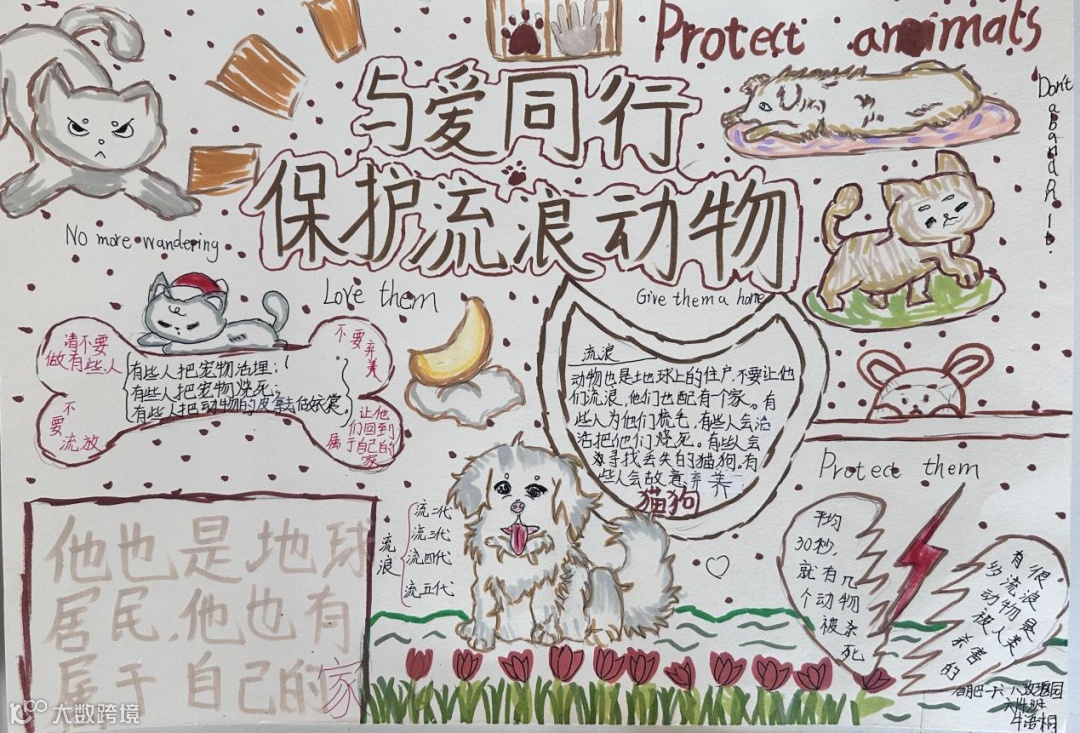 Protect animals
与爱同行
保护流浪动物
Don't
abandon it.
No more wandering
Love them
Give them a home
请不要
做有些人
不要弃养
不要流放
让他
们回到
属于自己的
家
有些人把宠物活埋;
有些人把宠物烧死;
有些人把动物的皮拿去做衣裳。
流浪
动物也是地球上的住户,不要让他
们流浪,他们也配有个家。有
些人为他们梳毛,有些人会活
活把他们烧死。有些人会
为寻找丢失的猫狗。有
些人会故意弃养
猫狗
Protect them
流浪
流二代
流三代
流四代
流五代
平均
30秒,
就有几
个动物
被杀
死
有很
多流浪
动物是
被人类
杀害的
他也是地球
居民,他也有
属于自己的家
大数跨境